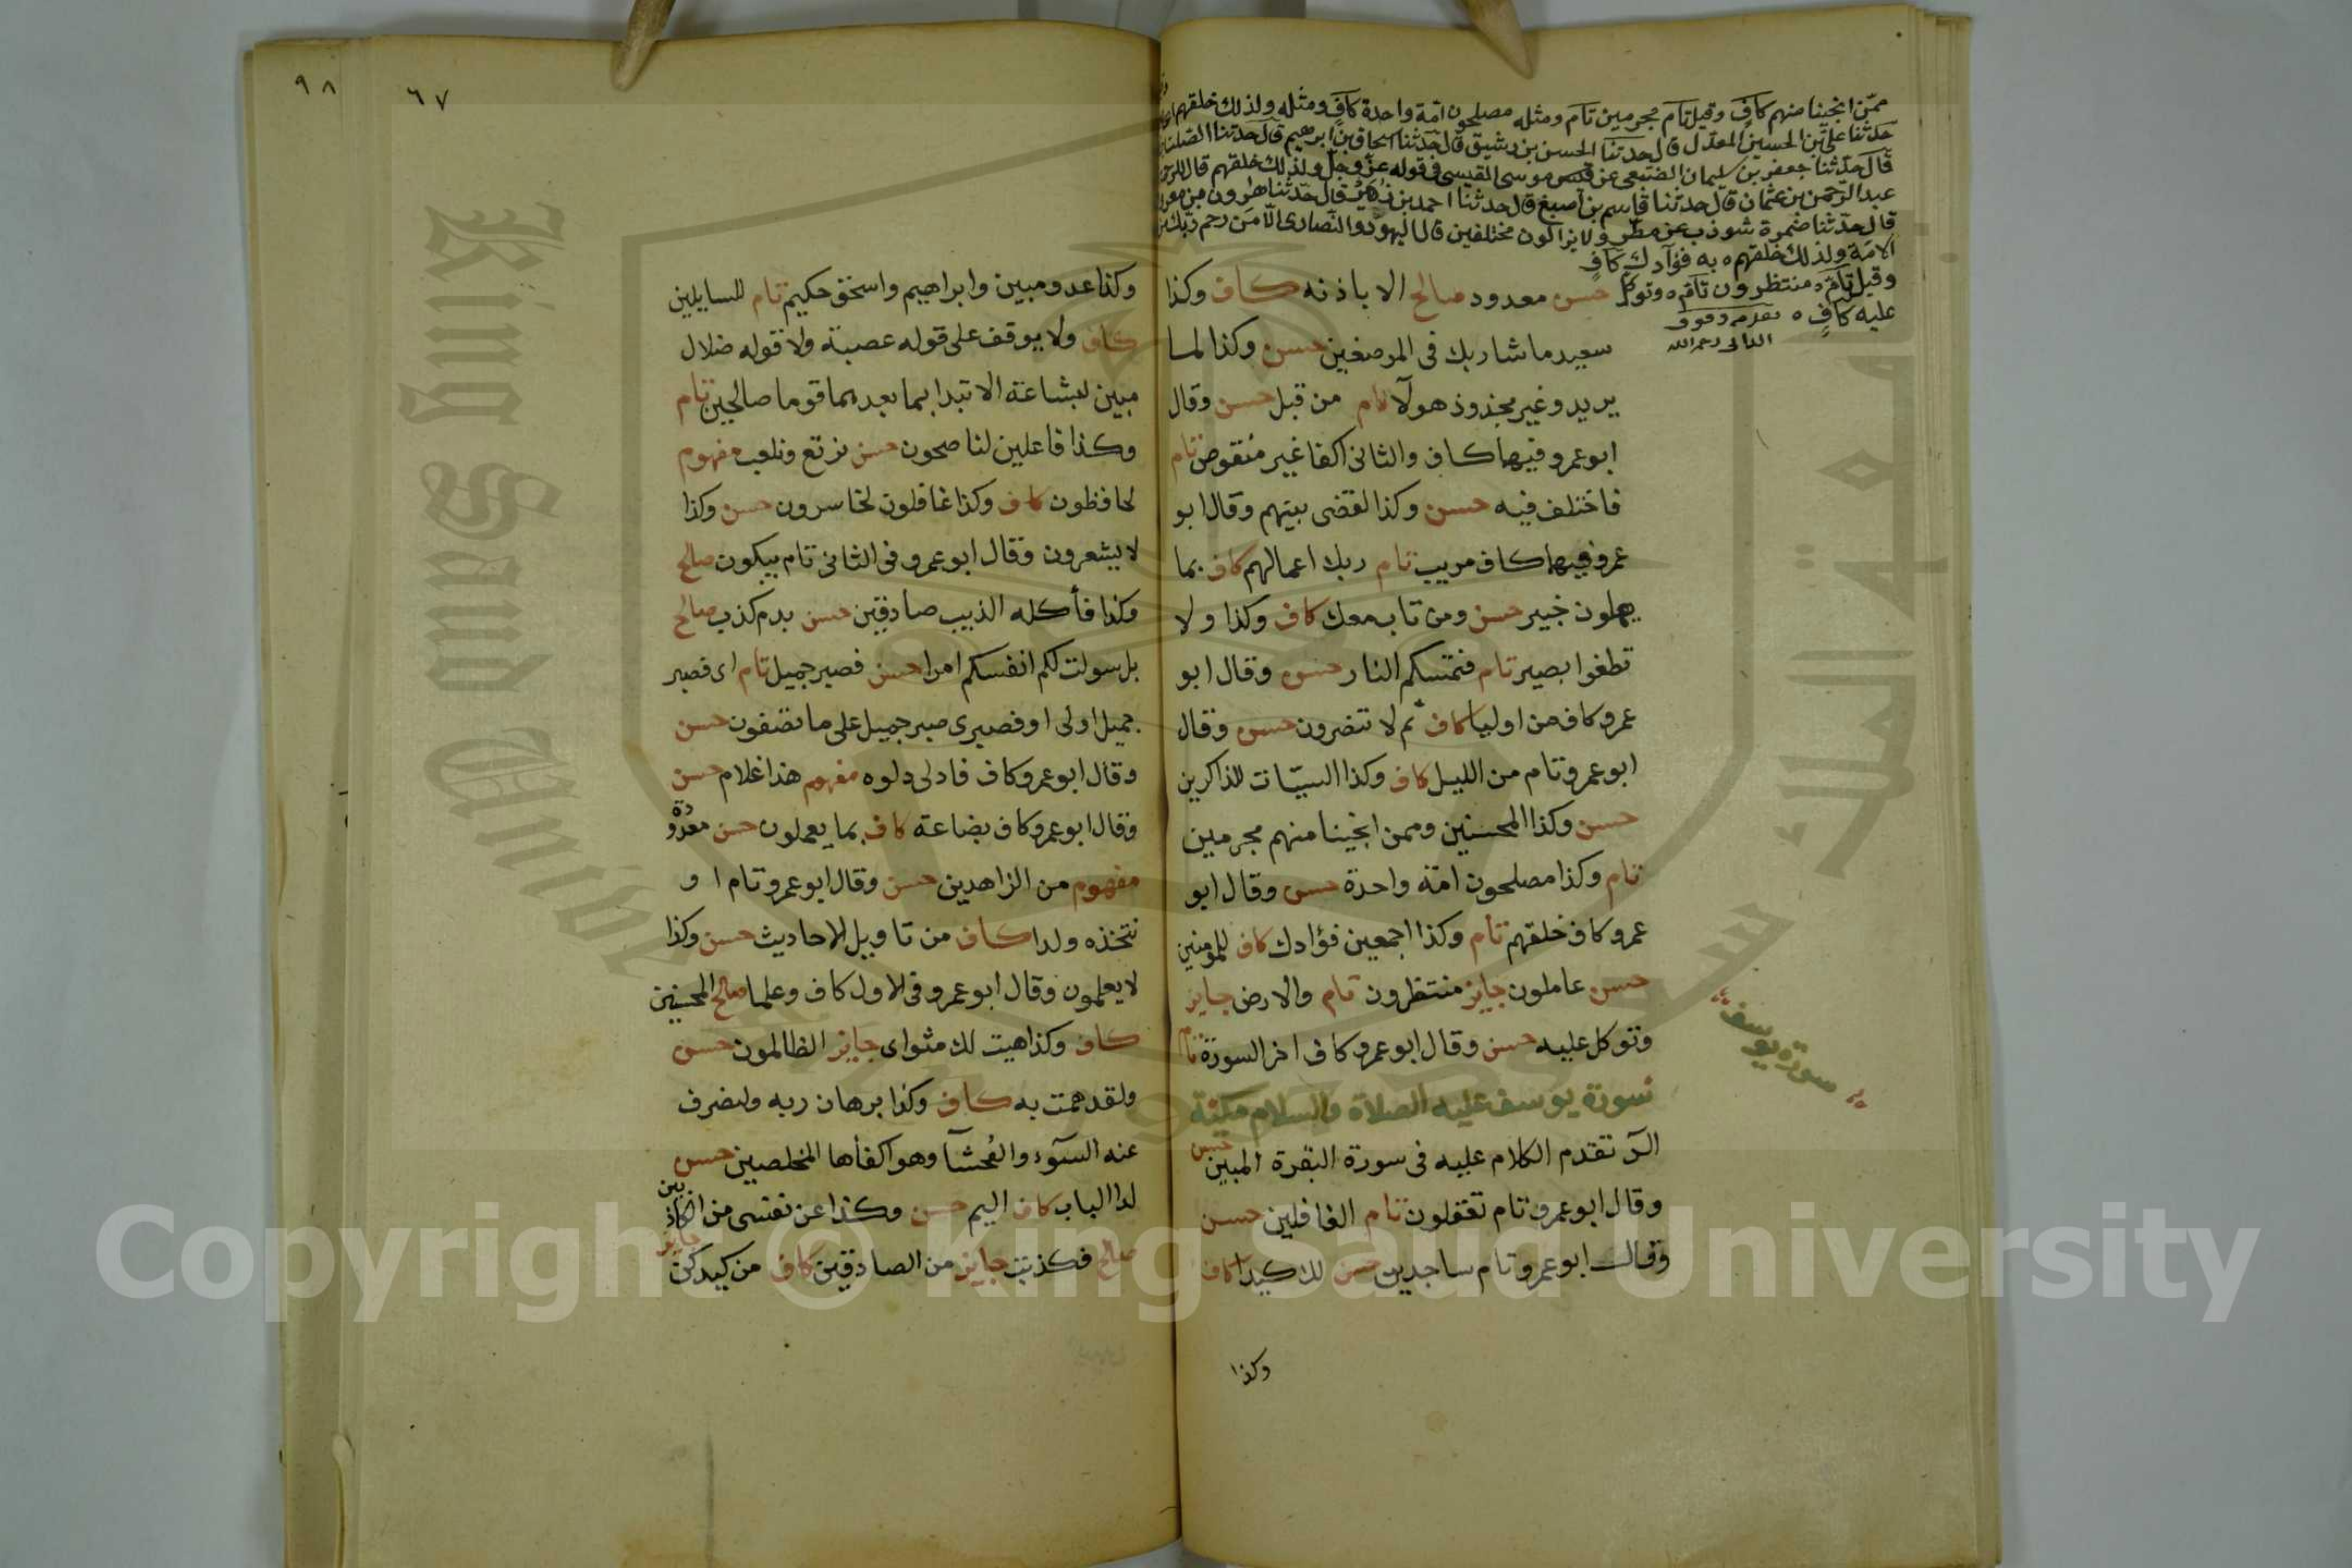 ممّن انجينا منهم كافٍ وقيل تام مجرمين تام ومثله مصلحون امّة واحدة كافٍ ومثله ولذلك خلقهم
حدثنا على بن الحسين المعدل قال حدثنا الحسن بن رشيق قال حدثنا اسحاق بن ابرهيم قال حدثنا
قال حدثنا جعفر بن سليمان الضبعى عن موسى القيسى فى قوله عز وجل ولذلك خلقهم قال
عبد الرحمن بن عثمان قال حدثنا قاسم بن اصبغ قال حدثنا احمد بن زهير قال حدثنا هرون بن
قال حدثنا ضمرة شوذب عن مطر ولا يزالون مختلفين قال اليهود والنصارى الا من رحم ربك
الامة ولذلك خلقهم ه به فؤادك كافٍ
وقيل تام ه منتظرون تام ه وتوكل
عليه كافٍ ه
الدانى رحمه الله
حسن معدود صالح الا باذنه كاف وكذا
سعيد ما شا ربك فى الموضعين حسن وكذا لما
يريد وغير مجذوذ هولآ تام من قبل حسن وقال
ابو عمرو فيهما كاف والثانى اكفا غير منقوص تام
فاختلف فيه حسن وكذا لقضى بينهم وقال ابو
عمرو فيهما كاف مريب تام ربك اعمالهم كاف بما
يعملون خبير حسن ومن تاب معك كاف وكذا ولا
تطغوا بصير تام فتمسكم النار حسن وقال ابو
عمرو كاف من اوليا كاف ثم لا تنصرون حسن وقال
ابو عمرو تام من الليل كاف وكذا السيّات للذاكرين
حسن وكذا المحسنين وممن انجينا منهم مجرمين
تام وكذا مصلحون امّة واحدة حسن وقال ابو
عمرو كاف خلقهم تام وكذا اجمعين فؤادك كاف للمومنين
حسن عاملون جايز منتظرون تام والارض جايز
وتوكل عليه حسن وقال ابو عمرو كاف اخر السورة تام
سورة يوسف عليه الصلاة والسلام مكيّة
سورة يوسف
الر تقدم الكلام عليه فى سورة البقرة المبين حسن
وقال ابو عمرو تام تعقلون تام الغافلين حسن
وقال ابو عمرو تام ساجدين حسن لك كيدا كاف
وكذا
٦٧
٩٨
وكذا عدو مبين وابراهيم واسحق حكيم تام للسايلين
كاف ولا يوقف على قوله عصبة ولا قوله ضلال
مبين لبشاعة الابتدا بما بعدهما قوما صالحين تام
وكذا فاعلين لناصحون حسن نرتع ونلعب مفهوم
لحافظون كاف وكذا غافلون لخاسرون حسن وكذا
لا يشعرون وقال ابو عمرو فى الثانى تام يبكون صالح
وكذا فأكله الذيب صادقين حسن بدم كذب صالح
بل سولت لكم انفسكم امرا حسن فصبر جميل تام اى فصبر
جميل اولى او فصبرى صبر جميل على ما تصفون حسن
وقال ابو عمرو كاف فادلى دلوه مفهوم هذا غلام حسن
وقال ابو عمرو كاف بضاعة كاف بما يعملون حسن معدودة
مفهوم من الزاهدين حسن وقال ابو عمرو تام او
نتخذه ولدا كاف من تاويل الاحاديث حسن وكذا
لا يعلمون وقال ابو عمرو فى الاول كاف وعلما صالح المحسنين
كاف وكذا هيت لك مثواى جايز الظالمون حسن
ولقد همت به كاف وكذا برهان ربه ولنصرف
عنه السوء والفحشآ وهو اكفأها المخلصين حسن
لدا الباب كاف اليم حسن وكذا عن نفسى من الكاذبين
صالح فكذبت جايز من الصادقين كاف من كيدكن جايز
King Saud University
Copyright © King Saud University